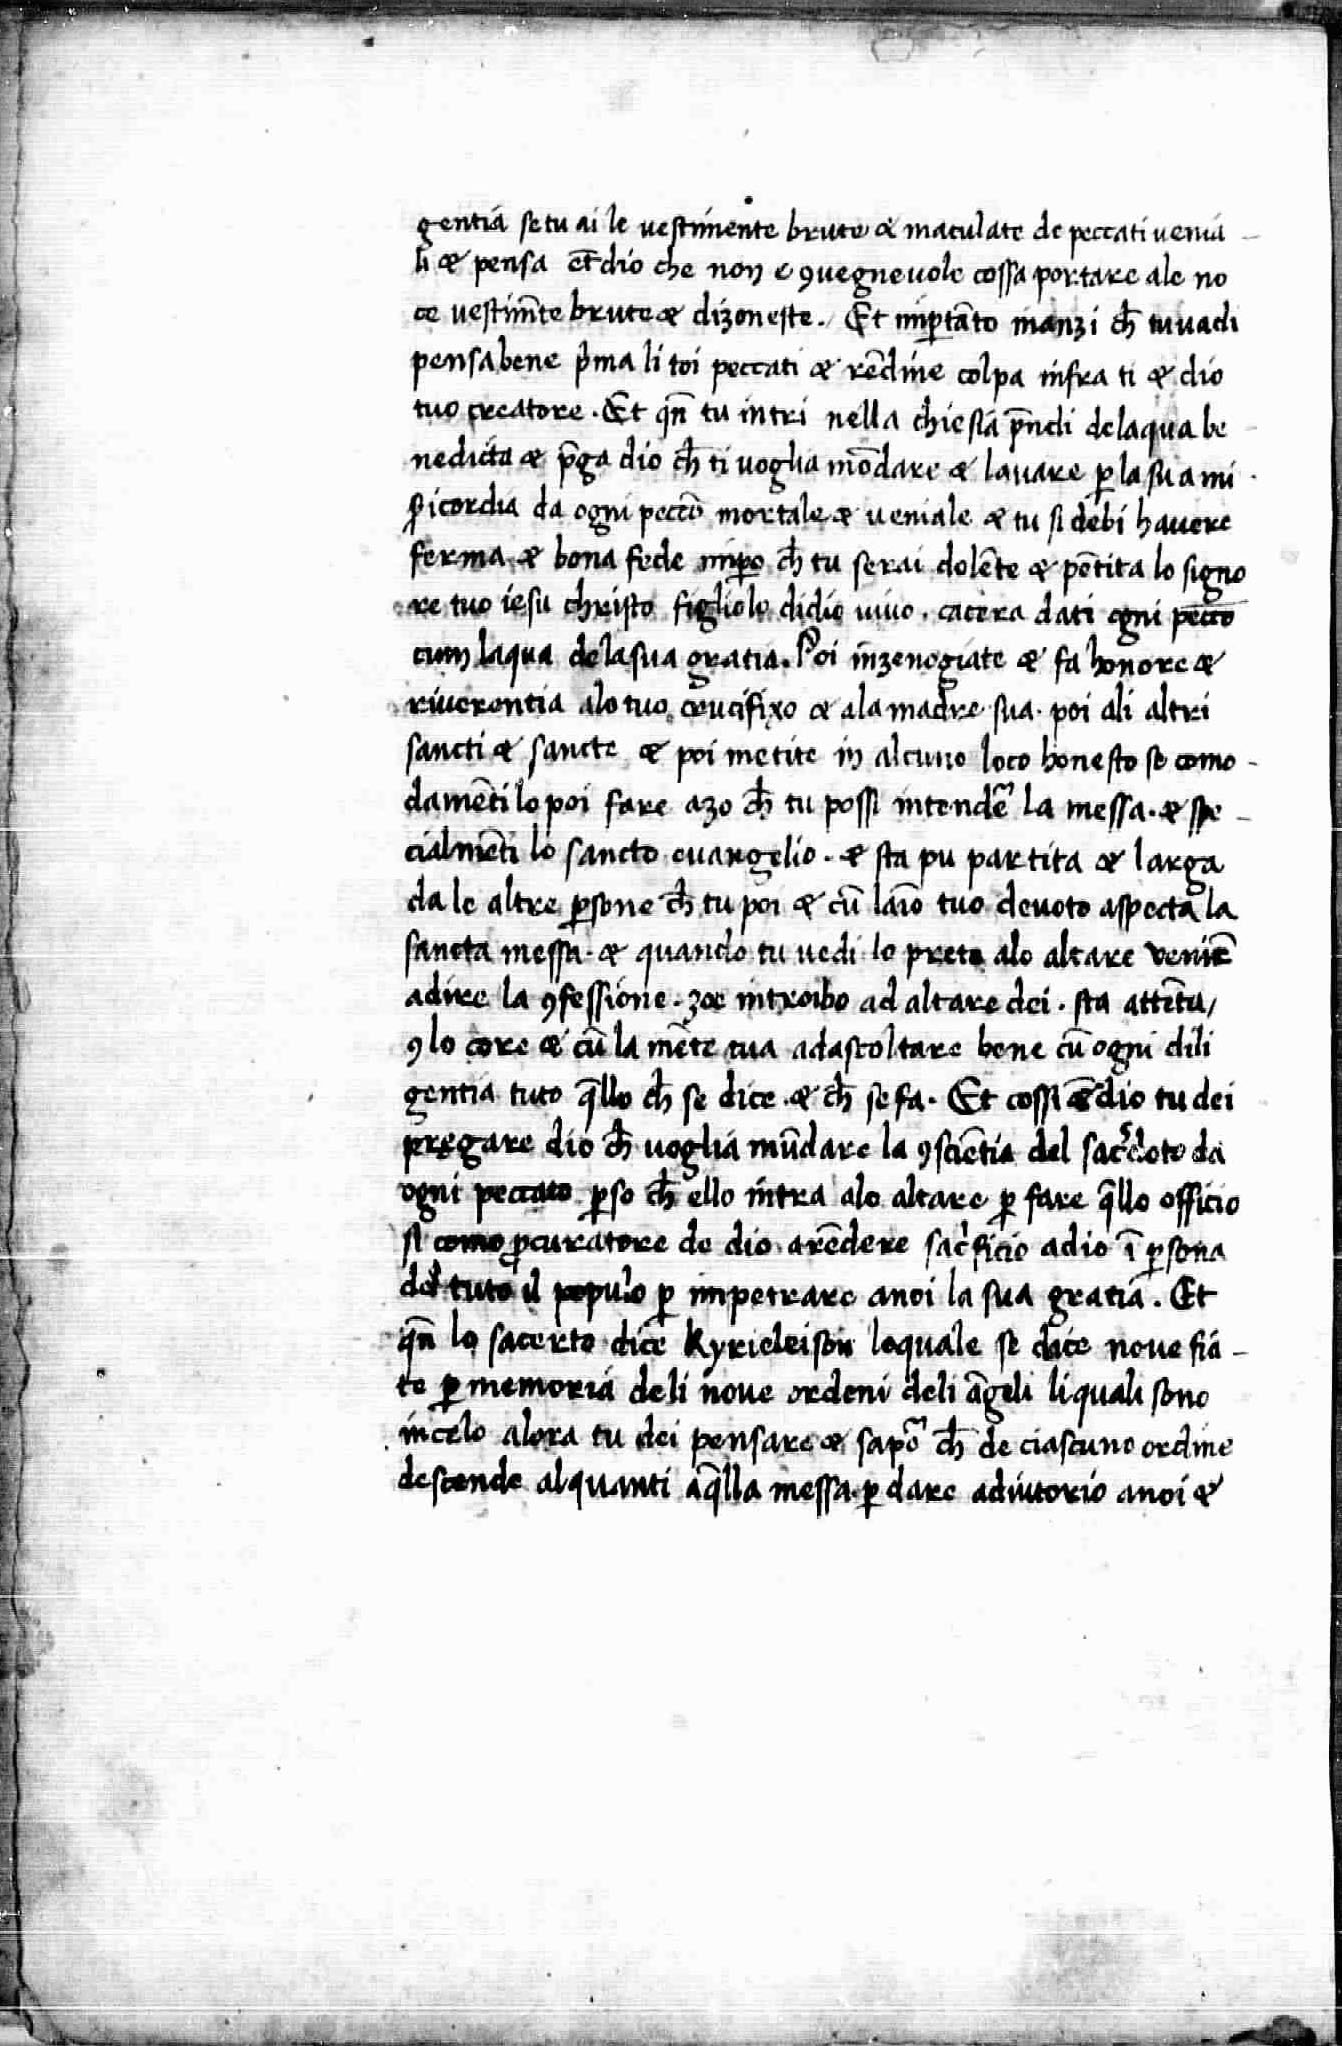 gentia se tu ai le vestimente brute & maculate de peccati venia-
li & pensa et̄dio che non e ꝯuegneuole cossa portare ale no
ce vestimēte brute & dizoneste. Et imꝑtāto inanzi ch̄ tu vadi
pensa bene p̄ma li toi peccati & rēdine colpa infra ti & dio
tuo creatore. Et qn̄ tu intri nella chiesia p̄ndi de laqua be
nedicta & p̄ga dio ch̄ ti voglia mōdare & lauare ꝑ la sua mi
ꝑicordia da ogni pecctō mortale & veniale & tu si debi hauere
ferma & bona fede imꝑo ch̄ tu serai dolēte & pētita lo signo
re tuo iesu christo figliolo didio viuo. cacera dati ogni pecctō
cum laqua dela sua gratia. Poi inzenogiate & fa honore &
riuerentia alo tuo crucifixo & ala madre sua. poi ali altri
sancti & sancte & poi metite in alcuno loco honesto se como-
damēti lo poi fare azo ch̄ tu possi intendē la messa. & spe-
cialmēti lo sancto euangelio. & sta pu partita & larga
da le altre ꝑsone ch̄ tu poi & cū laīo tuo deuoto aspecta la
sancta messa. & quando tu vedi lo prete alo altare veniē
adire la ꝯfessione. zoe introibo ad altare dei. sta attēta/
ꝯ lo core & cū la mēte tua adascoltare bene cū ogni dili
gentia tuto q̄llo ch̄ se dice. & ch̄ se fa. Et cossi &̄dio tu dei
pregare dio ch̄ voglia mūdare la ꝯsciētia del sac̄dote da
ogni peccato ꝑso ch̄ ello intra alo altare ꝑ fare q̄llo officio
si como ꝓcuratore de dio arēdere sac̄ficio adio ī ꝑsona
del tuto il populo ꝑ impetrare anoi la sua gratia. Et
qn̄ lo sacerto dice Kyrieleison loquale se dice noue fia-
te ꝑ memoria deli noue ordeni deli āgeli liquali sono
incelo alora tu dei pensare & sapē ch̄ de ciascuno ordine
descende alquanti aq̄lla messa. ꝑ dare adiutorio anoi &